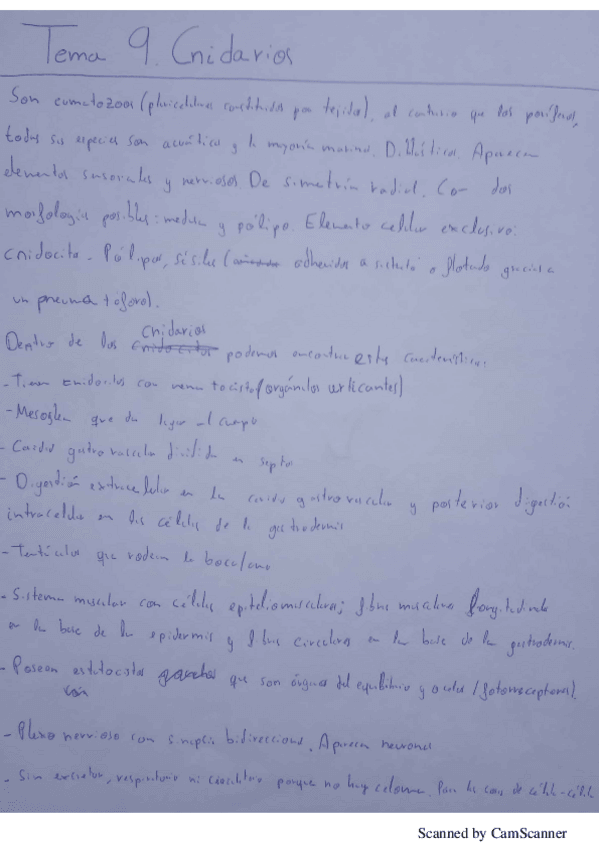 Tema 9. Cnidarios
Son eumetazoos (pluricelulares constituidos por tejidos), al contrario que los poríferos,
todas sus especies son acuáticas y la mayoría marinas. Diblásticos. Aparecen
elementos sensoriales y nerviosos. De simetría radial. Con dos
morfologías posibles: medusa y pólipo. Elemento celular exclusivo:
cnidocito. Pólipos, sésiles ( adheridos a sustrato o flotando gracias a
un pneumatóforo).
Dentro de los cnidarios podemos encontrar estas características:
- Tienen cnidocitos con nematocistos (orgánulos urticantes)
- Mesoglea que da lugar al cuerpo
- Cavidad gastrovascular dividida en septos
- Digestión extracelular en la cavidad gastrovascular y posterior digestión
intracelular en las células de la gastrodermis
- Tentáculos que rodean la boca/ano
- Sistema muscular con células epiteliomusculares; fibras musculares longitudinales
en la base de la epidermis y fibras circulares en la base de la gastrodermis.
- Poseen estatocistos que son órganos del equilibrio y ocelos (fotorreceptores).
- Plexo nervioso con sinapsis bidireccional. Aparecen neuronas
- Sin excretor, respiratorio ni circulatorio porque no hay celoma. Pasa las cosas de célula-célula
Scanned by CamScanner